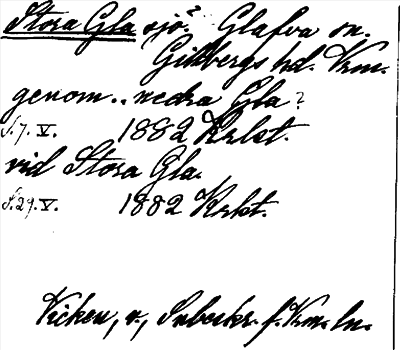 Stora Gla sjö.² Glafva sn.
Gillbergs hd. Vrm.
genom.. nedra Gla?
S.7. V. 1882 Krkt.
vid Stora Gla.
S.29. V. 1882 Krkt.
Vicken, v., f. Vrm. ln.